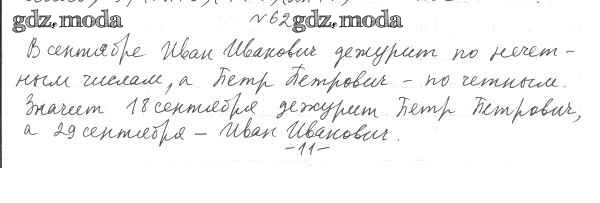 gdz.moda №62 gdz.moda
В сентябре Иван Иванович дежурит по нечет-
ным числам, а Петр Петрович - по четным.
Значит 18 сентября дежурит Петр Петрович,
а 29 сентября - Иван Иванович.
-11-